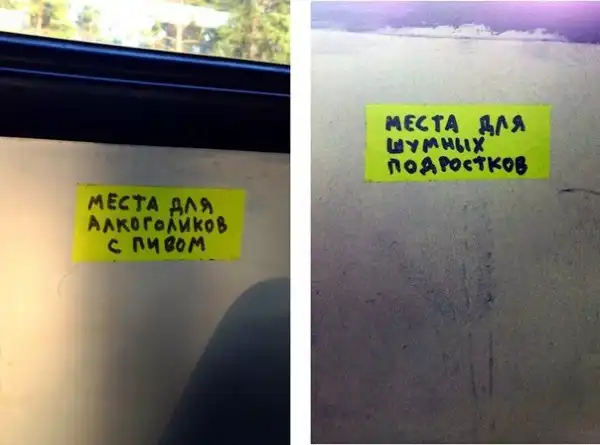 МЕСТА ДЛЯ
АЛКОГОЛИКОВ
С ПИВОМ
МЕСТА ДЛЯ
ШУМНЫХ
ПОДРОСТКОВ